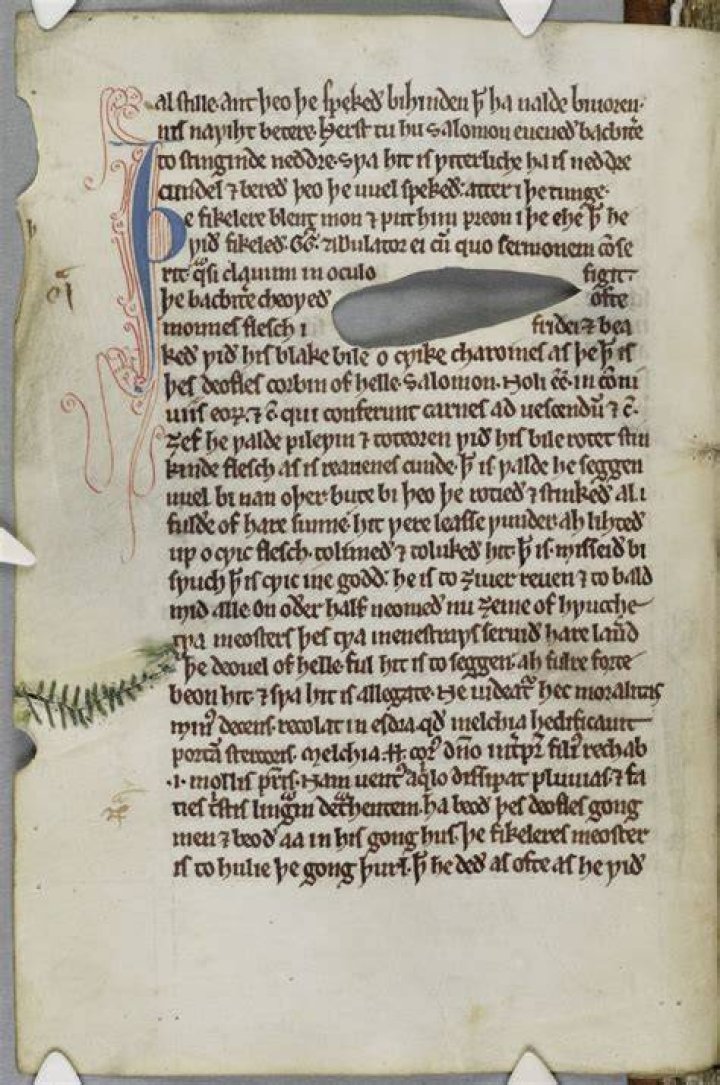 al stille. ant þeo þe spekeð bihinden þ̄ ha nalde biuoren.
nis nawiht betere. Herst tu hu Salomon eueneð bacbitꝛ̄e
to stinginde neddre. Swa hit is witerliche ha is neddre
cundel ⁊ bereð þeo þe uuel spekeð. atter i þe tunge.
Þe fikelere blent mon ⁊ put him preon i þe ehe þ̄ he
wið fikeleð. GG. Adulator ei cū quo sermonem cōse
rit q̄si clauum in oculo figit.
þe bacbitꝛ̄e cheoweð ofte
monnes flesch i fridei ⁊ bea
keð wið his blake bile o cwike charoines as þe þ̄ is
þes deofles corbin of helle. Salomon. Noli ēē. in cōui
uiis eoꝝ. ⁊ c̄. qui conferunt carnes ad uescendū ⁊ c̄.
Ȝef he walde pilewin ⁊ toteoren wið his bile rotet stin
kinde flesch as is reauenes cunde. þ̄ is walde he seggen
uuel bi nan oþer bute bi þeo þe rotieð ⁊ stinkeð al i
fulðe of hare sunne. hit were leasse wunder. ah lihteð
up o cwic flesch. tolimeð ⁊ tolukeð hit. þ̄ is. misseið bi
swuch þ̄ is cwic ine godd. he is to ȝiuer reuen ⁊ to bald
mid alle. On oðer half neomeð nu ȝeme of hwucche
twa meosters þes twa menestraws seruið hare lauð
þe deouel of helle. ful hit is to seggen. ah fulre forte
beon hit. ⁊ swa hit is allegate. Ne uideatᷣ hec moralitas
min᷒ decens. recolat in esdra qd̄ melchia hedificauit
portā stercoris. Melchia. ⁊ cor᷒ dn̄o int̄pr̄ fili᷒ rechab
.i. mollis pr̄is. Nam uent᷒ aq̄lo dissipat pluuias. ⁊ fa
cies t̄stis linguam det̄hentem. ha beoð þes deofles gong
men ⁊ beoð aa in his gong hus. þe fikeleres meoster
is to hulie þe gong þurl. þ̄ he deð as ofte as he wið